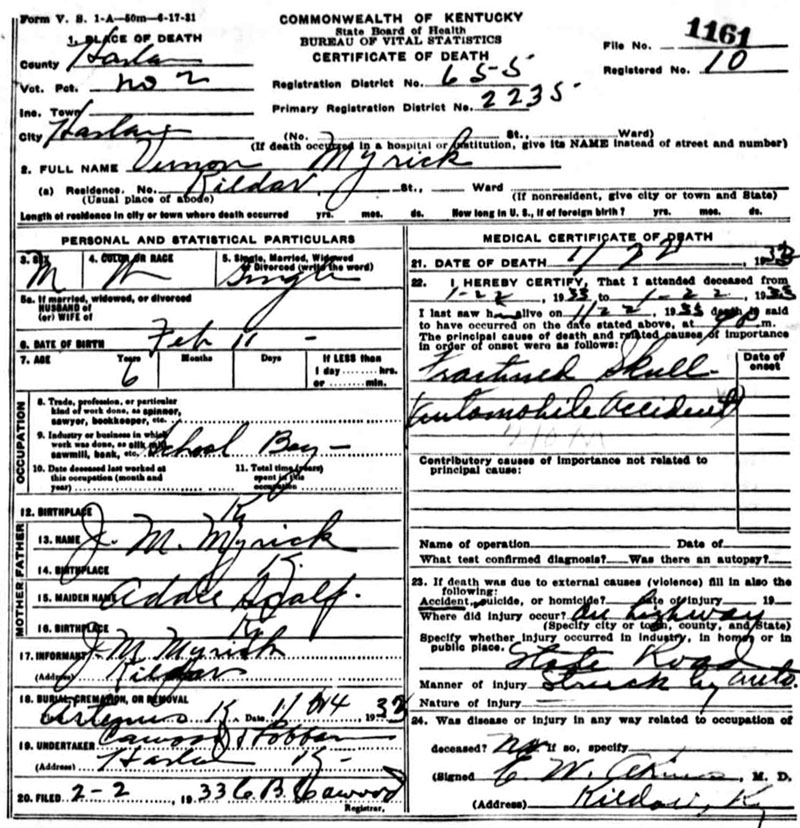 Form V. S. 1-A—50m—6-17-31
COMMONWEALTH OF KENTUCKY
State Board of Health
BUREAU OF VITAL STATISTICS
CERTIFICATE OF DEATH
File No. 1161
Registered No. 10
1. PLACE OF DEATH
County Harlan
Vot. Pct. No 2
Inc. Town
City Harlan
Registration District No. 655
Primary Registration District No. 2235
(No. St., Ward)
(If death occurred in a hospital or institution, give its NAME instead of street and number)
2. FULL NAME Vernon Myrick
(a) Residence. No. Kildav St., Ward
(Usual place of abode) (If nonresident, give city or town and State)
Length of residence in city or town where death occurred yrs. mos. ds. How long in U. S., if of foreign birth? yrs. mos. ds.
PERSONAL AND STATISTICAL PARTICULARS
3. SEX M
4. COLOR OR RACE W
5. Single, Married, Widowed or Divorced (write the word) Single
5a. If married, widowed, or divorced
HUSBAND of
(or) WIFE of
6. DATE OF BIRTH Feb 11 -
7. AGE Years 6 Months Days If LESS than
1 day hrs.
or min.
OCCUPATION
8. Trade, profession, or particular
kind of work done, as spinner,
sawyer, bookkeeper, etc.
9. Industry or business in which
work was done, as silk mill,
sawmill, bank, etc. School Boy -
10. Date deceased last worked at
this occupation (month and
year)
11. Total time (years)
spent in this
occupation
12. BIRTHPLACE Ky
FATHER
13. NAME J. M. Myrick
14. BIRTHPLACE Ky
MOTHER
15. MAIDEN NAME Scalf.
16. BIRTHPLACE Ky
17. INFORMANT J. M. Myrick
(Address) Kildav
18. BURIAL, CREMATION, OR REMOVAL
Artemus Ky Date 193
19. UNDERTAKER Cawood
(Address) Harlan Ky-
20. FILED 2-2, 1933 C. B. Cawood
Registrar.
MEDICAL CERTIFICATE OF DEATH
21. DATE OF DEATH 1/22, 1933
22. I HEREBY CERTIFY, That I attended deceased from
1-22, 1933 to 1-22, 1933
I last saw h alive on 1/22, 1933 death is said
to have occurred on the date stated above, at p.m.
The principal cause of death and related causes of importance
in order of onset were as follows:
Date of onset
Fractured Skull -
Automobile Accident
Contributory causes of importance not related to
principal cause:
Name of operation Date of
What test confirmed diagnosis? Was there an autopsy?
23. If death was due to external causes (violence) fill in also the
following:
Accident, suicide, or homicide? Date of injury 19
Where did injury occur? On highway
(Specify city or town, county, and State)
Specify whether injury occurred in industry, in home, or in
public place. State Road
Manner of injury Struck by auto.
Nature of injury
24. Was disease or injury in any way related to occupation of
deceased? No If so, specify
(Signed E. W. , M. D.
(Address) Kildav, Ky